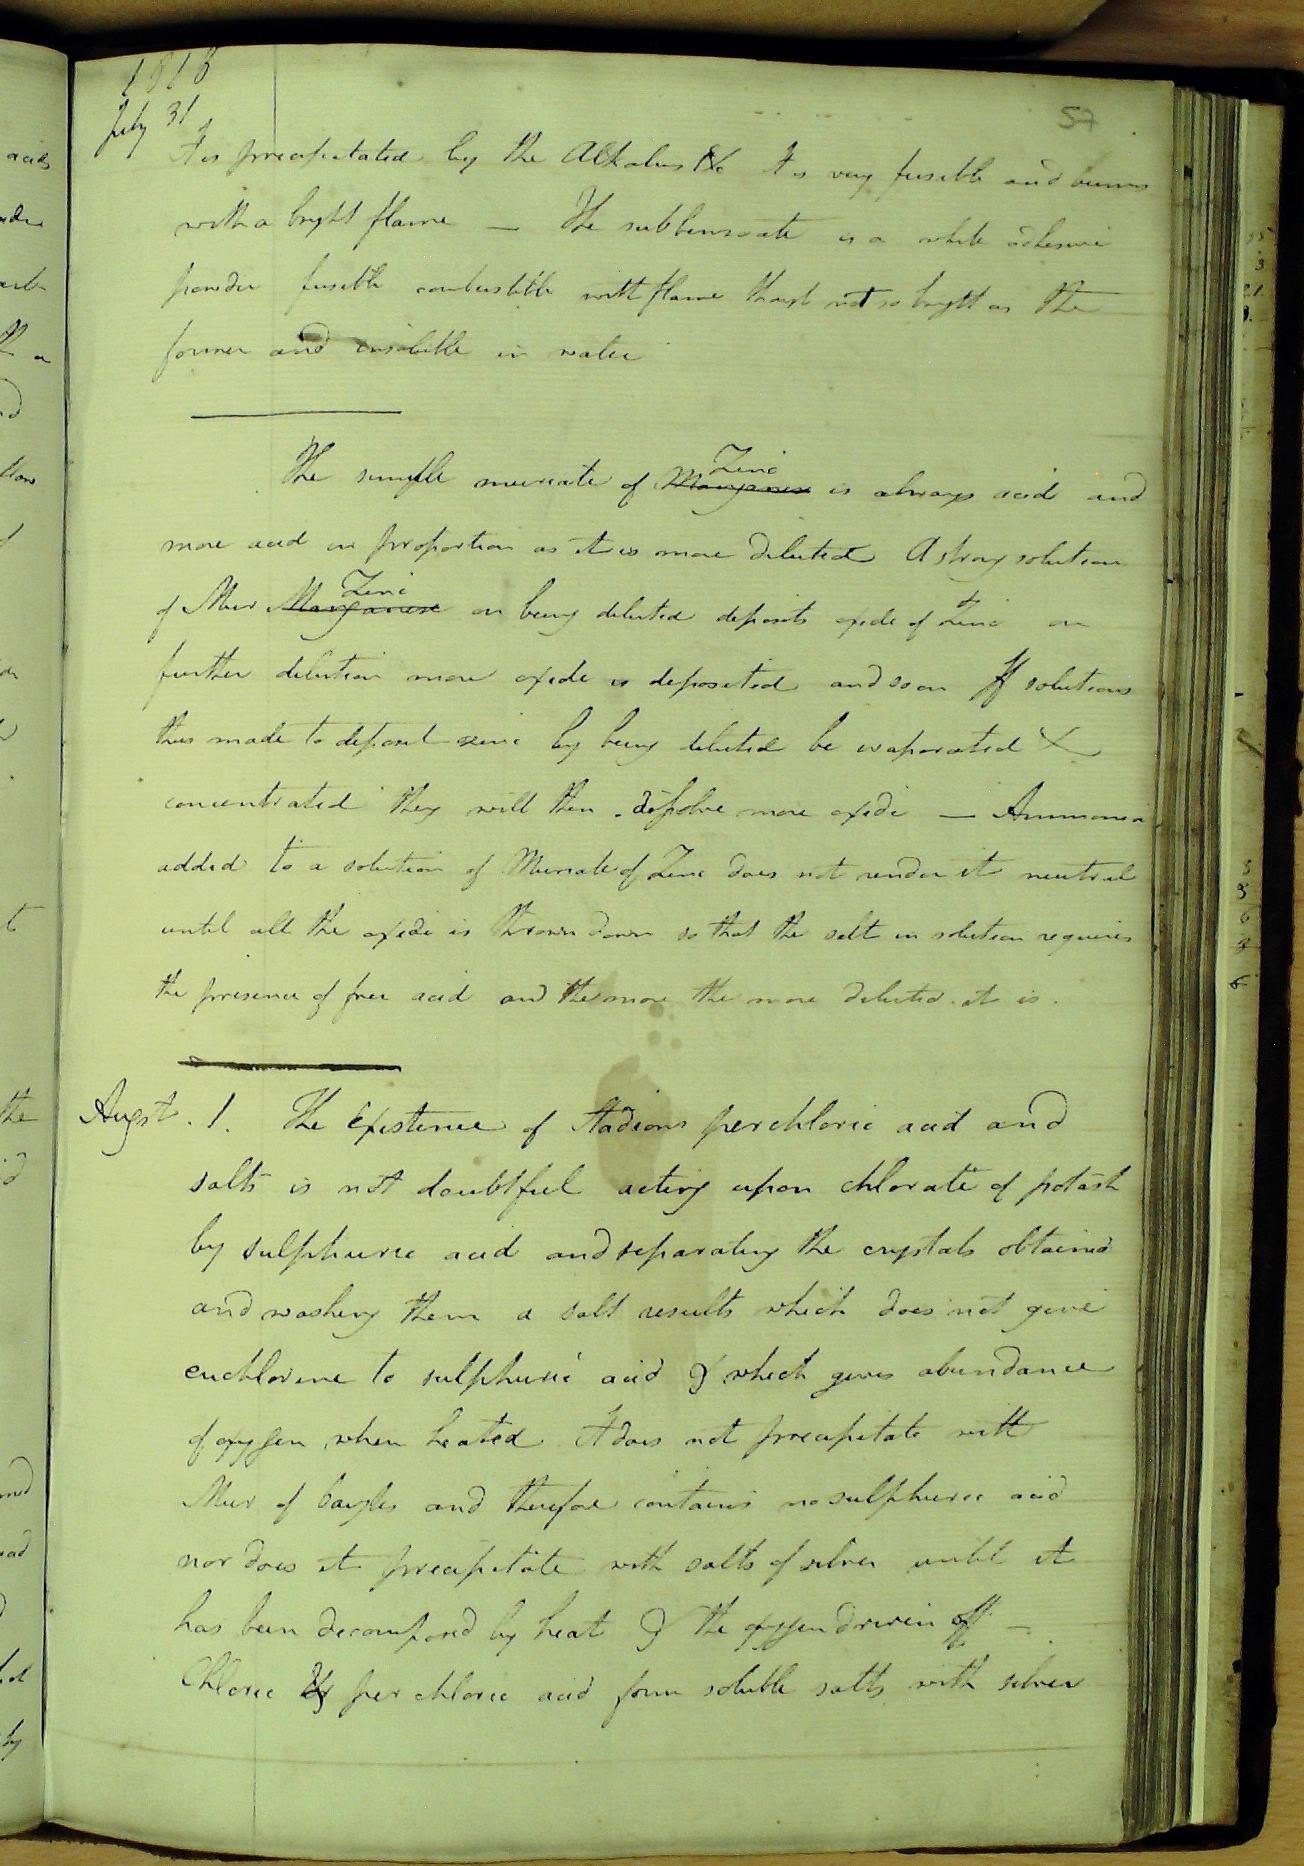 1818
July 31
57
It is precipitated by the Alkalies &c It is very fusible and burns
with a bright flame — The subbenzoate is a white adhesive
powder fusible combustible with flame though not so bright as the
former and insoluble in water
The simple muriate of Manganese Zinc is always acid and
more acid in proportion as it is more diluted A strong solution
of Mur Manganese Zinc on being diluted deposits oxide of Zinc on
further dilution more oxide is deposited and so on If solutions
thus made to deposit zinc by being diluted be evaporated &
concentrated they will then dissolve more oxide — Ammonia
added to a solution of Muriate of Zinc does not render it neutral
until all the oxide is thrown down so that the salt in solution requires
the presence of free acid and the more the more diluted it is.
Augst. 1. The Existence of Stadions perchloric acid and
salts is not doubtful acting upon chlorate of potash
by sulphuric acid and separating the crystals obtained
and washing them a salt results which does not give
euchlorine to sulphuric acid & which gives abundance
of oxygen when heated It does not precipitate with
Mur of barytes and therefore contains no sulphuric acid
nor does it precipitate with salts of silver until it
has been decomposed by heat & the oxygen driven off —
Chloric & per chloric acid form soluble salts with silver